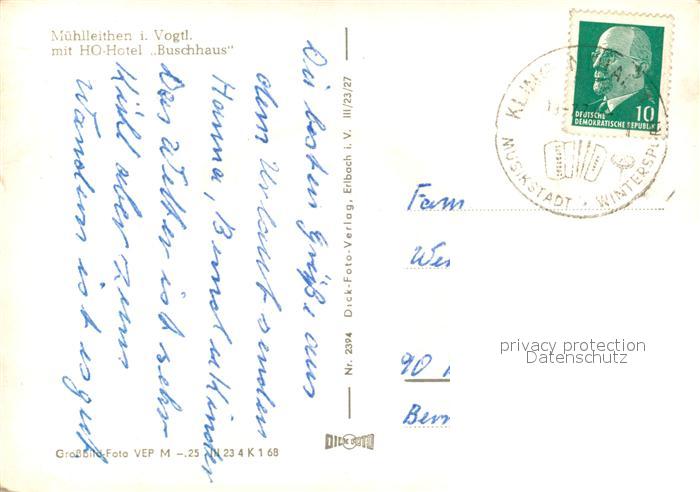 Mühlleithen i. Vogtl.
mit HO-Hotel „Buschhaus"
Die besten Grüße aus
dem Urlaub senden
Hanna, Bernd u Kinder
Das Wetter ist sehr
Kühl aber zum
Wandern ist es gut
Großbild-Foto VEP M -.25 III 23 4 K 1 68
Nr. 2394 Dick-Foto-Verlag, Erlbach i. V. III/23/27
DICK FOTO
DEUTSCHE
DEMOKRATISCHE REPUBLIK
10
MUSIKSTADT · WINTERSPO
Fam
We
90
privacy protection
Datenschutz